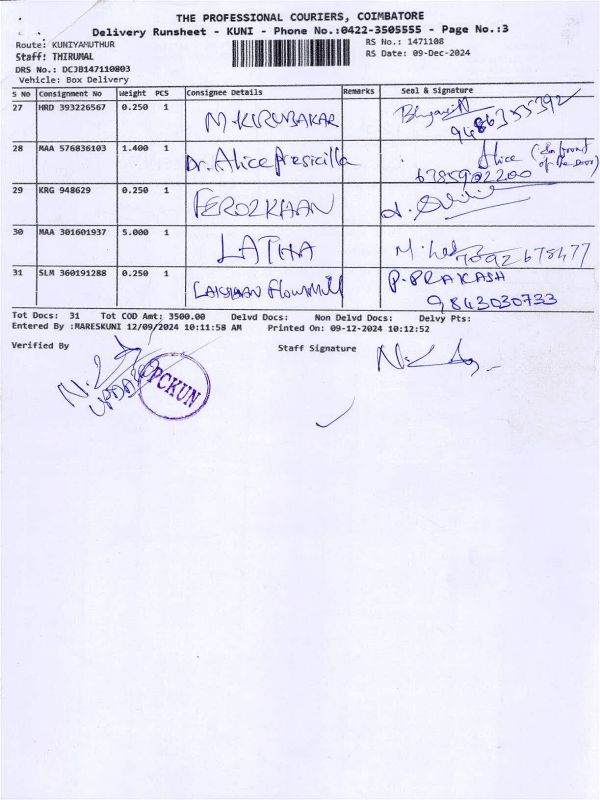 THE PROFESSIONAL COURIERS, COIMBATORE
Delivery Runsheet - KUNI - Phone No.:0422-3505555 - Page No.:3
Route: KUNIYAMUTHUR RS No.: 1471108
Staff: THIRUMAL RS Date: 09-Dec-2024
DRS No.: DCJB147110803
Vehicle: Box Delivery
S No Consignment No Weight PCS Consignee Details Remarks Seal & Signature
27 HRD 393226567 0.250 1 M.KIRUBAKAR 9486355392
28 MAA 576836103 1.400 1 Dr. Alice Presicilla Alice (In front of the Door)
29 KRG 948629 0.250 1 FEROZKHAN
30 MAA 301601937 5.000 1 LATHA
31 SLM 360191288 0.250 1 FlourMill P. PRAKASH
9843030733
Tot Docs: 31 Tot COD Amt: 3500.00 Delvd Docs: Non Delvd Docs: Delvy Pts:
Entered By :MARESKUNI 12/09/2024 10:11:58 AM Printed On: 09-12-2024 10:12:52
Verified By Staff Signature
PCKUN